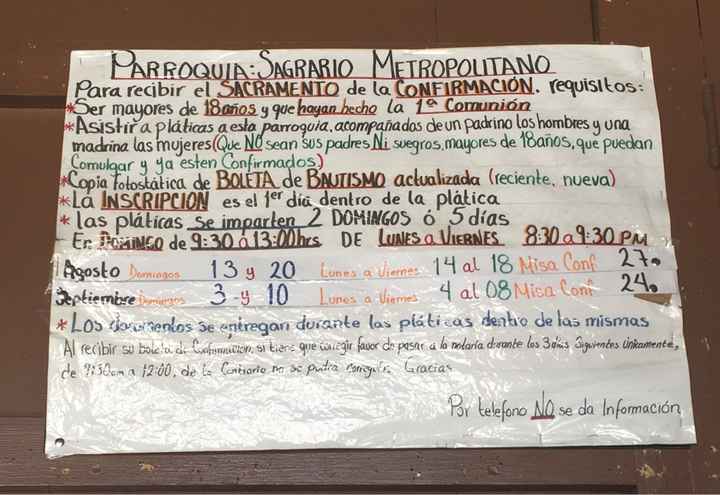 PARROQUIA: SAGRARIO METROPOLITANO
Para recibir el SACRAMENTO de la CONFIRMACIÓN. requisitos:
*Ser mayores de 18 años y que hayan hecho la 1ª Comunión
*Asistir a pláticas a esta parroquia, acompañados de un padrino los hombres y una
madrina las mujeres (Que NO sean sus padres Ni suegros, mayores de 18años, que puedan
Comulgar y ya esten Confirmados)
*Copia fotostática de BOLETA de BAUTISMO actualizada (reciente, nueva)
*LA INSCRIPCION es el 1er día dentro de la plática
* las pláticas se imparten 2 DOMINGOS ó 5 días
En DOMINGO de 9:30 á 13:00hrs DE LUNES a VIERNES 8:30 a 9:30 PM
Agosto Domingos 13 y 20 Lunes a Viernes 14 al 18 Misa Conf 27.
Septiembre Domingos 3 y 10 Lunes a Viernes 4 al 08 Misa Conf 24.
* Los documentos se entregan durante las pláticas dentro de las mismas
Al recibir su boleta de Confirmación, si tiene que corregir favor de pasar a la notaría durante los 3 días siguientes únicamente,
de 9:30am a 12:00, de lo Contrario no se podra corregir. Gracias
Por telefono NO se da Información